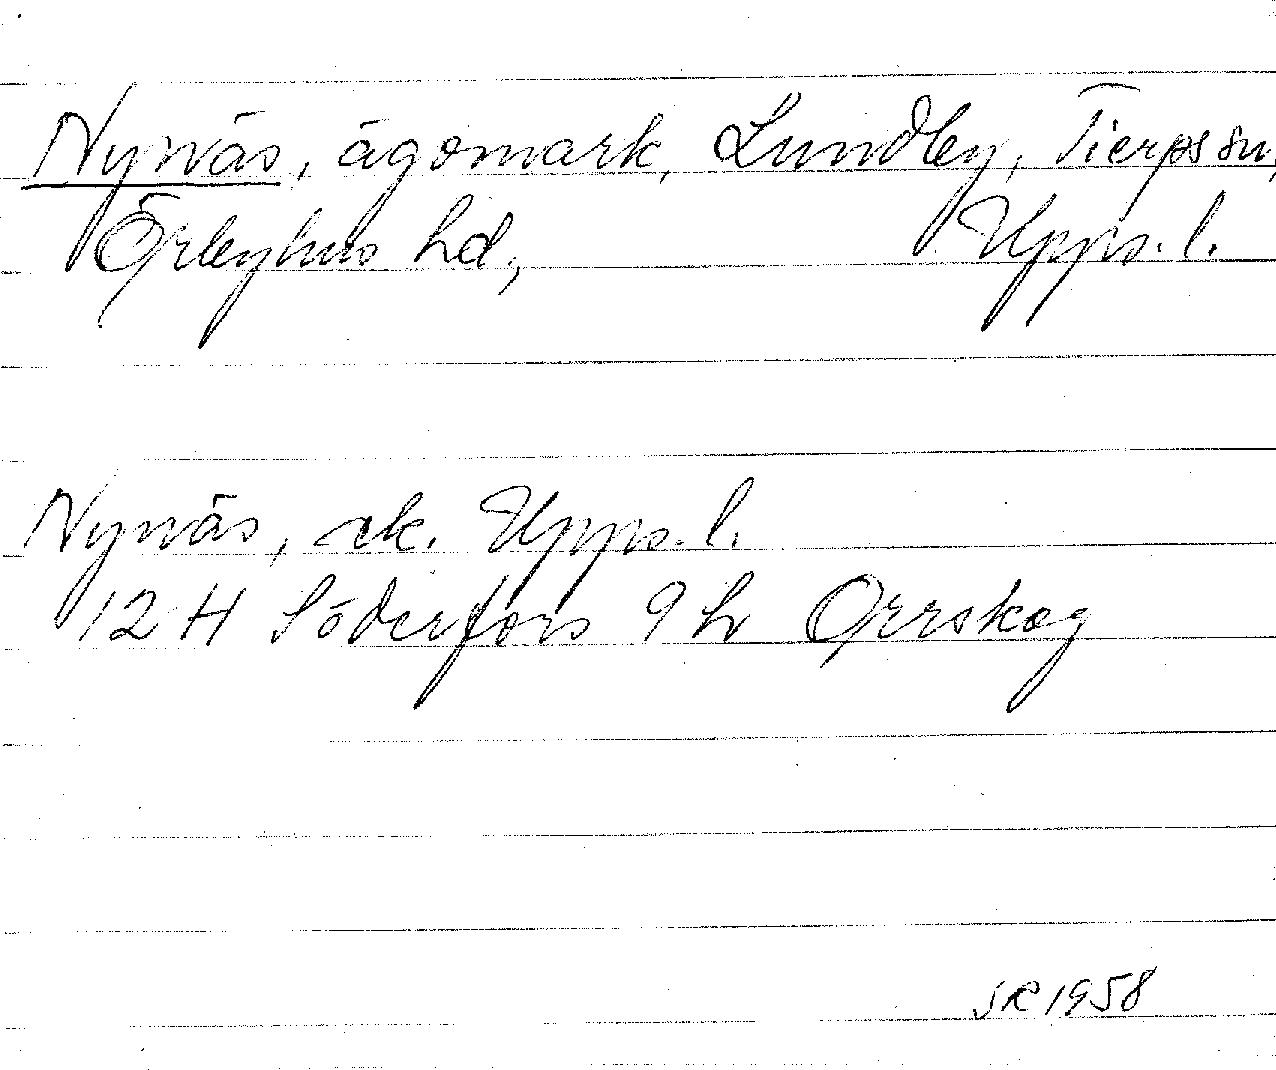 Nynäs, ägomark, Lundby, Tierps sn,
Örbyhus hd, Upps. l.
Nynäs, ek. Upps. l.
12 H Söderfors 9 h Orrskog
SR 1958